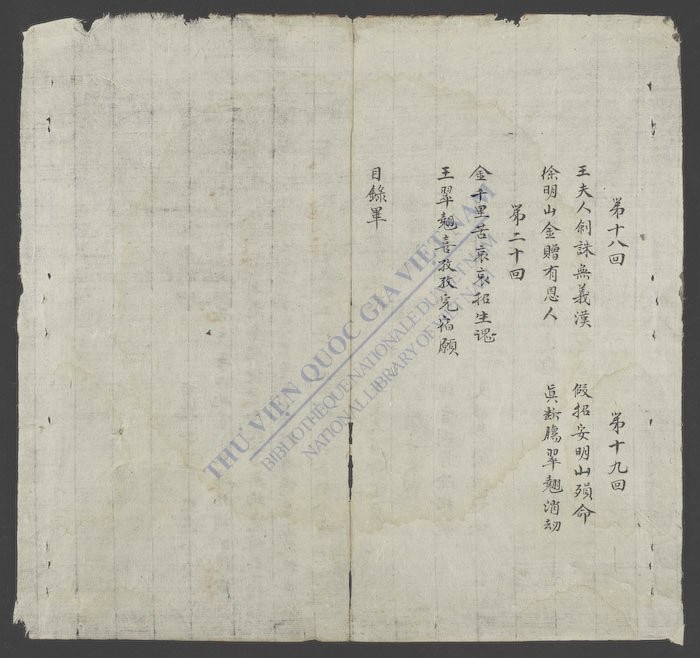 第十八回
王夫人劍誅無義漢
徐明山金贈有恩人
第十九回
假招安明山殞命
眞断膓翠翹消刼
第二十回
金千里苦哀哀招生魂
王翠翹喜孜孜完宿願
目錄畢
THƯ VIỆN QUỐC GIA VIỆT NAM
BIBLIOTHÈQUE NATIONALE DU VIETNAM
NATIONAL LIBRARY OF VIETNAM